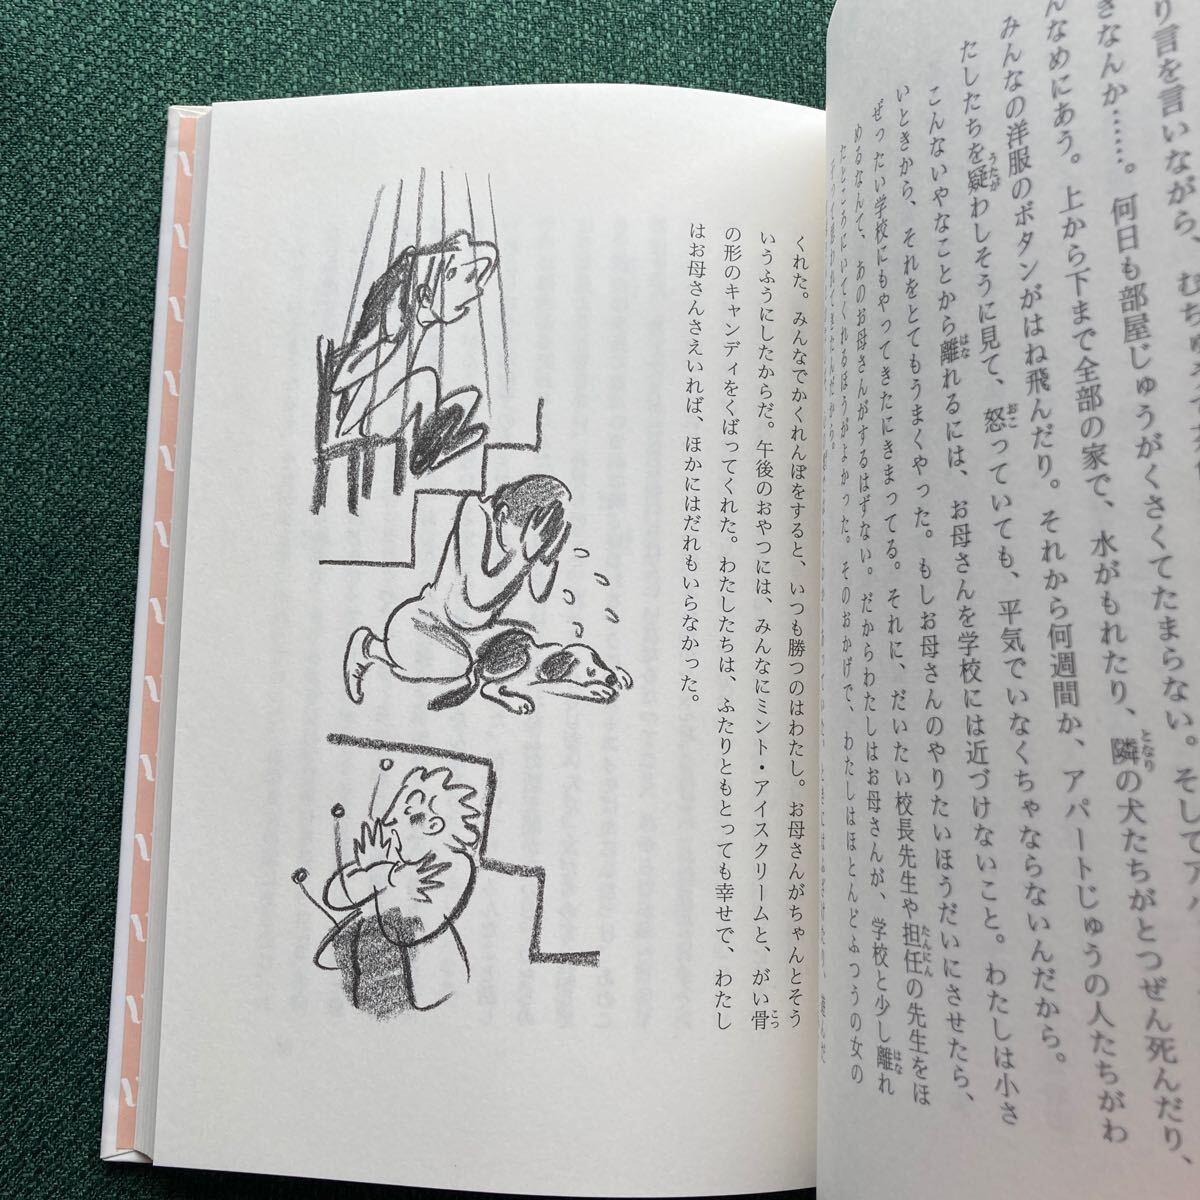 り言を言いながら、むちゅ
きなんか……。何日も部屋じゅうがくさくてたまらない。そしてア
んなめにあう。上から下まで全部の家で、水がもれたり、隣の犬たちがとつぜん死んだり、
みんなの洋服のボタンがはね飛んだり。それから何週間か、アパートじゅうの人たちがわ
たしたちを疑わしそうに見て、怒っていても、平気でいなくちゃならないんだから。
こんないやなことから離れるには、お母さんを学校には近づけないこと。わたしは小さ
いときから、それをとてもうまくやった。もしお母さんのやりたいほうだいにさせたら、
ぜったい学校にもやってきたにきまってる。それに、だいたい校長先生や担任の先生をほ
めるなんて、あのお母さんがするはずない。だからわたしはお母さんが、学校と少し離れ
たところにいてくれるほうがよかった。そのおかげで、わたしはほとんどふつうの女の
くれた。みんなでかくれんぼをすると、いつも勝つのはわたし。お母さんがちゃんとそう
いうふうにしたからだ。午後のおやつには、みんなにミント・アイスクリームと、がい骨
の形のキャンディをくばってくれた。わたしたちは、ふたりともとっても幸せで、わたし
はお母さんさえいれば、ほかにはだれもいらなかった。